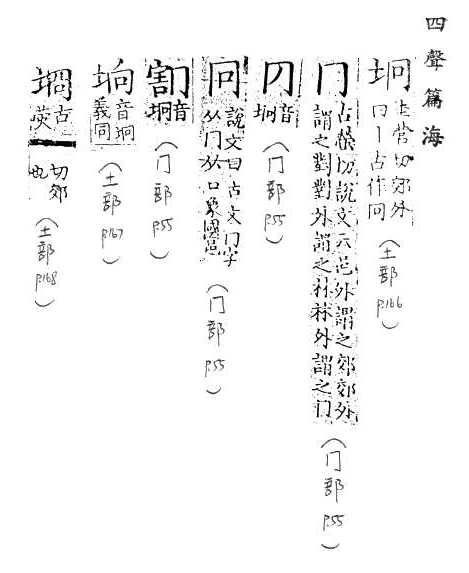 四聲篇海
坰 圭營切郊外
曰丨古作冋 (土部 P.166)
冂 古切說文云邑外謂之郊郊外
謂之對對外謂之林林外謂之冂 (冂部 P.55)
音坰 (冂部 P.55)
冋 說文曰古文冂字
从冂从口象國邑 (冂部 P.55)
音坰 (冂部 P.55)
垧 音坰
義同 (土部 P.167)
古切郊
也 (土部 P.168)